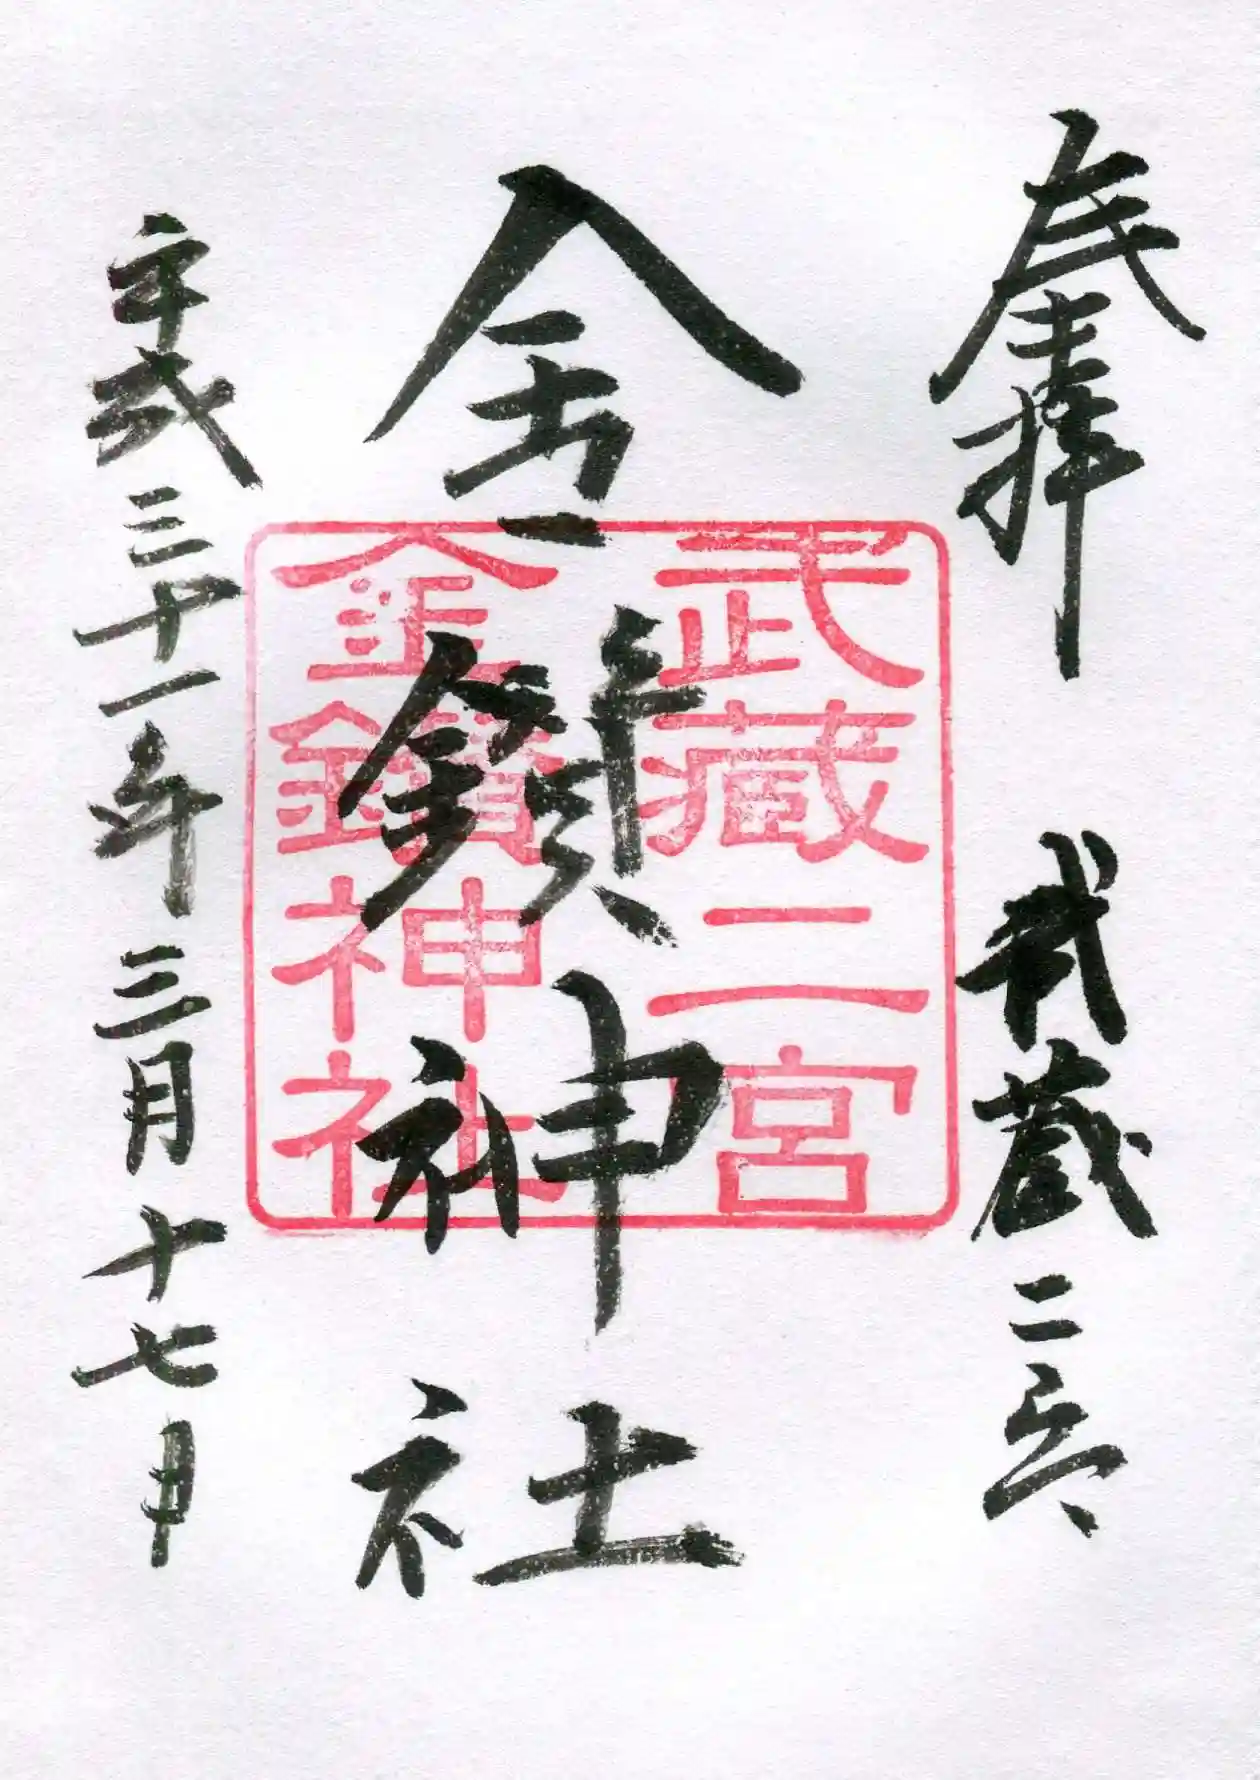 奉拝 武蔵二宮
金鑚神社
武蔵二宮
金鑚神社
平成三十一年三月十七日